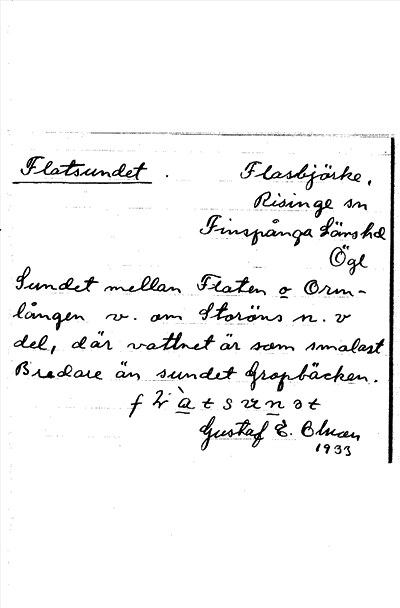 Flatsundet.
Flasbjörke,
Risinge sn
Finspånga Länshd
Ögl
Sundet mellan Flaten o Orm-
lången v. om Storöns n. v
del, där vattnet är som smalast
Bredare än sundet Gropbäcken.
Gustaf E.
1933